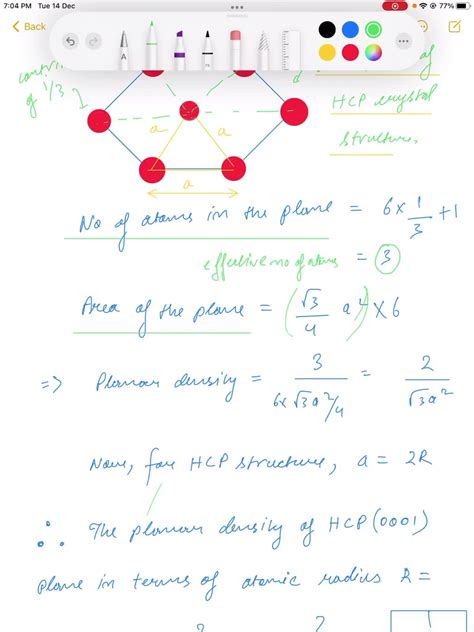 7:04 PM Tue 14 Dec
77%
Back
A
of 1/3
of
HCP crystal
structure.
a a
a
No of atoms in the plane = 6 × 1/3 + 1
effective no of atoms = 3
Area of the plane = (√3/4 a²) × 6
=> Planar density = 3/(6×√3a²/4) = 2/(√3a²)
Now, for HCP structure, a = 2R
∴ The planar density of HCP (0001)
plane in terms of atomic radius R =
2 2 1